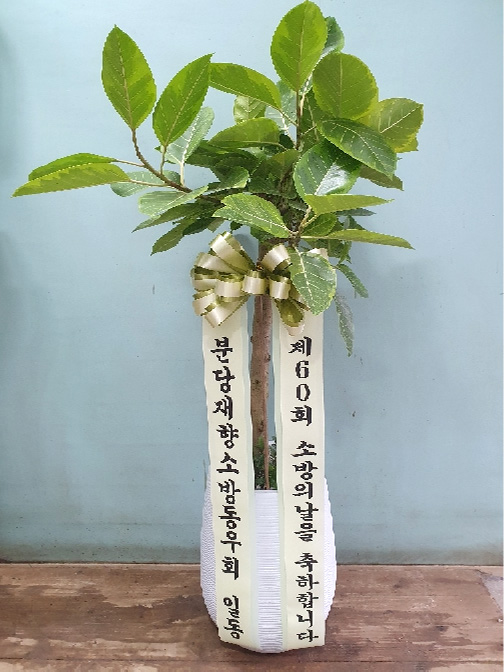 제60회 소방의날을 축하합니다
분당재향소방동우회 일동